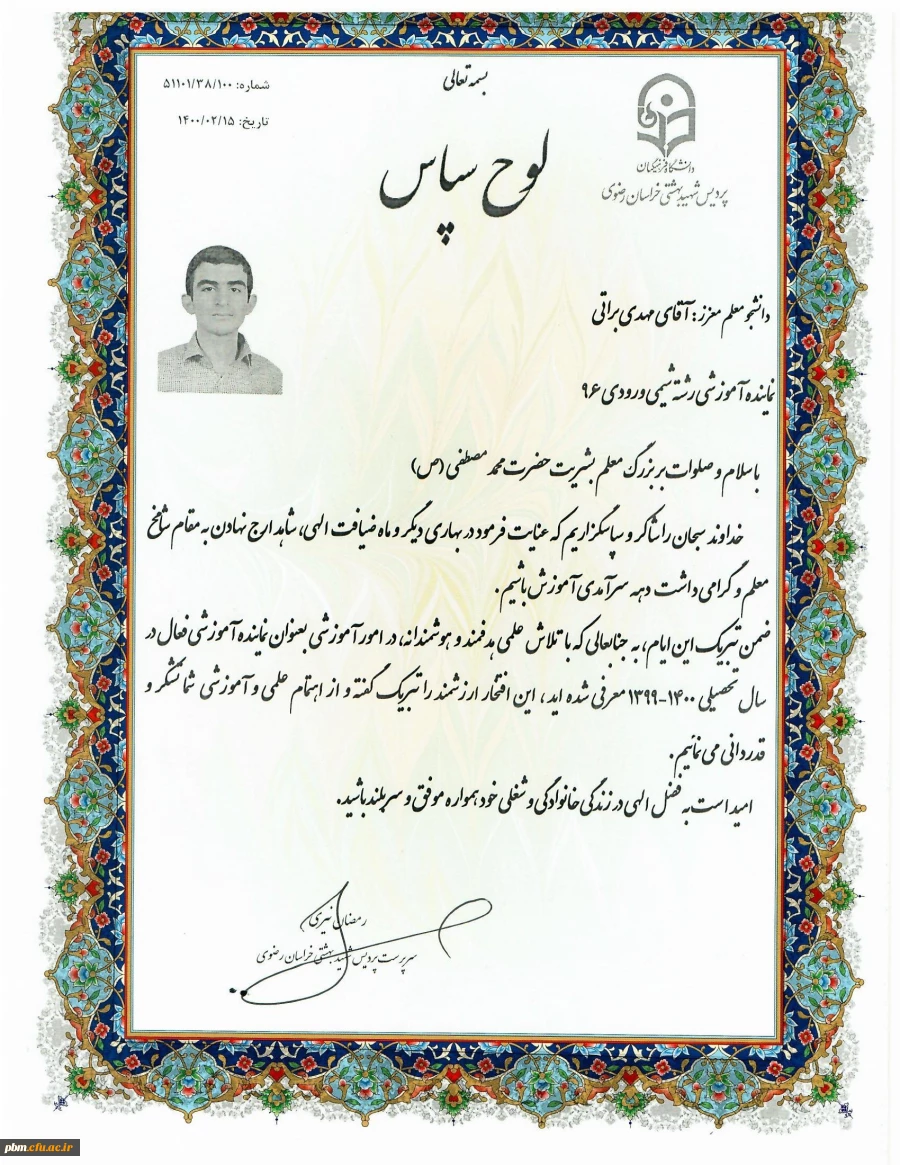 بسمه تعالی
شماره: ۵۱۱۰۱/۳۸/۱۰۰
تاریخ: ۱۴۰۰/۰۲/۱۵
دانشگاه فرهنگیان
پردیس شهید بهشتی خراسان رضوی
لوح سپاس
دانشجو معلم معزز: آقای مهدی براتی
نماینده آموزشی رشته شیمی ورودی ۹۶
با سلام و صلوات بر بزرگ معلم بشریت حضرت محمد مصطفی (ص)
خداوند سبحان را شاکر و سپاسگزاریم که عنایت فرمود در بهاری دیگر و ماه ضیافت الهی، شاهد ارج نهادن به مقام شامخ
معلم و گرامی داشت دهه سرآمدی آموزش باشیم.
ضمن تبریک این ایام، به جنابعالی که با تلاش علمی هدفمند و هوشمندانه، در امور آموزشی بعنوان نماینده آموزشی فعال در
سال تحصیلی ۱۴۰۰-۱۳۹۹ معرفی شده اید، این افتخار ارزشمند را تبریک گفته و از اهتمام علمی و آموزشی شما تشکر و
قدردانی می نمائیم.
امید است به فضل الهی در زندگی خانوادگی و شغلی خود همواره موفق و سربلند باشید.
رمضان نیری
سرپرست پردیس شهید بهشتی خراسان رضوی
pbm.cfu.ac.ir